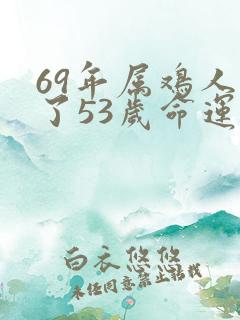 69年属鸡人
了53岁命运
白衣悠悠
未经同意禁止转载